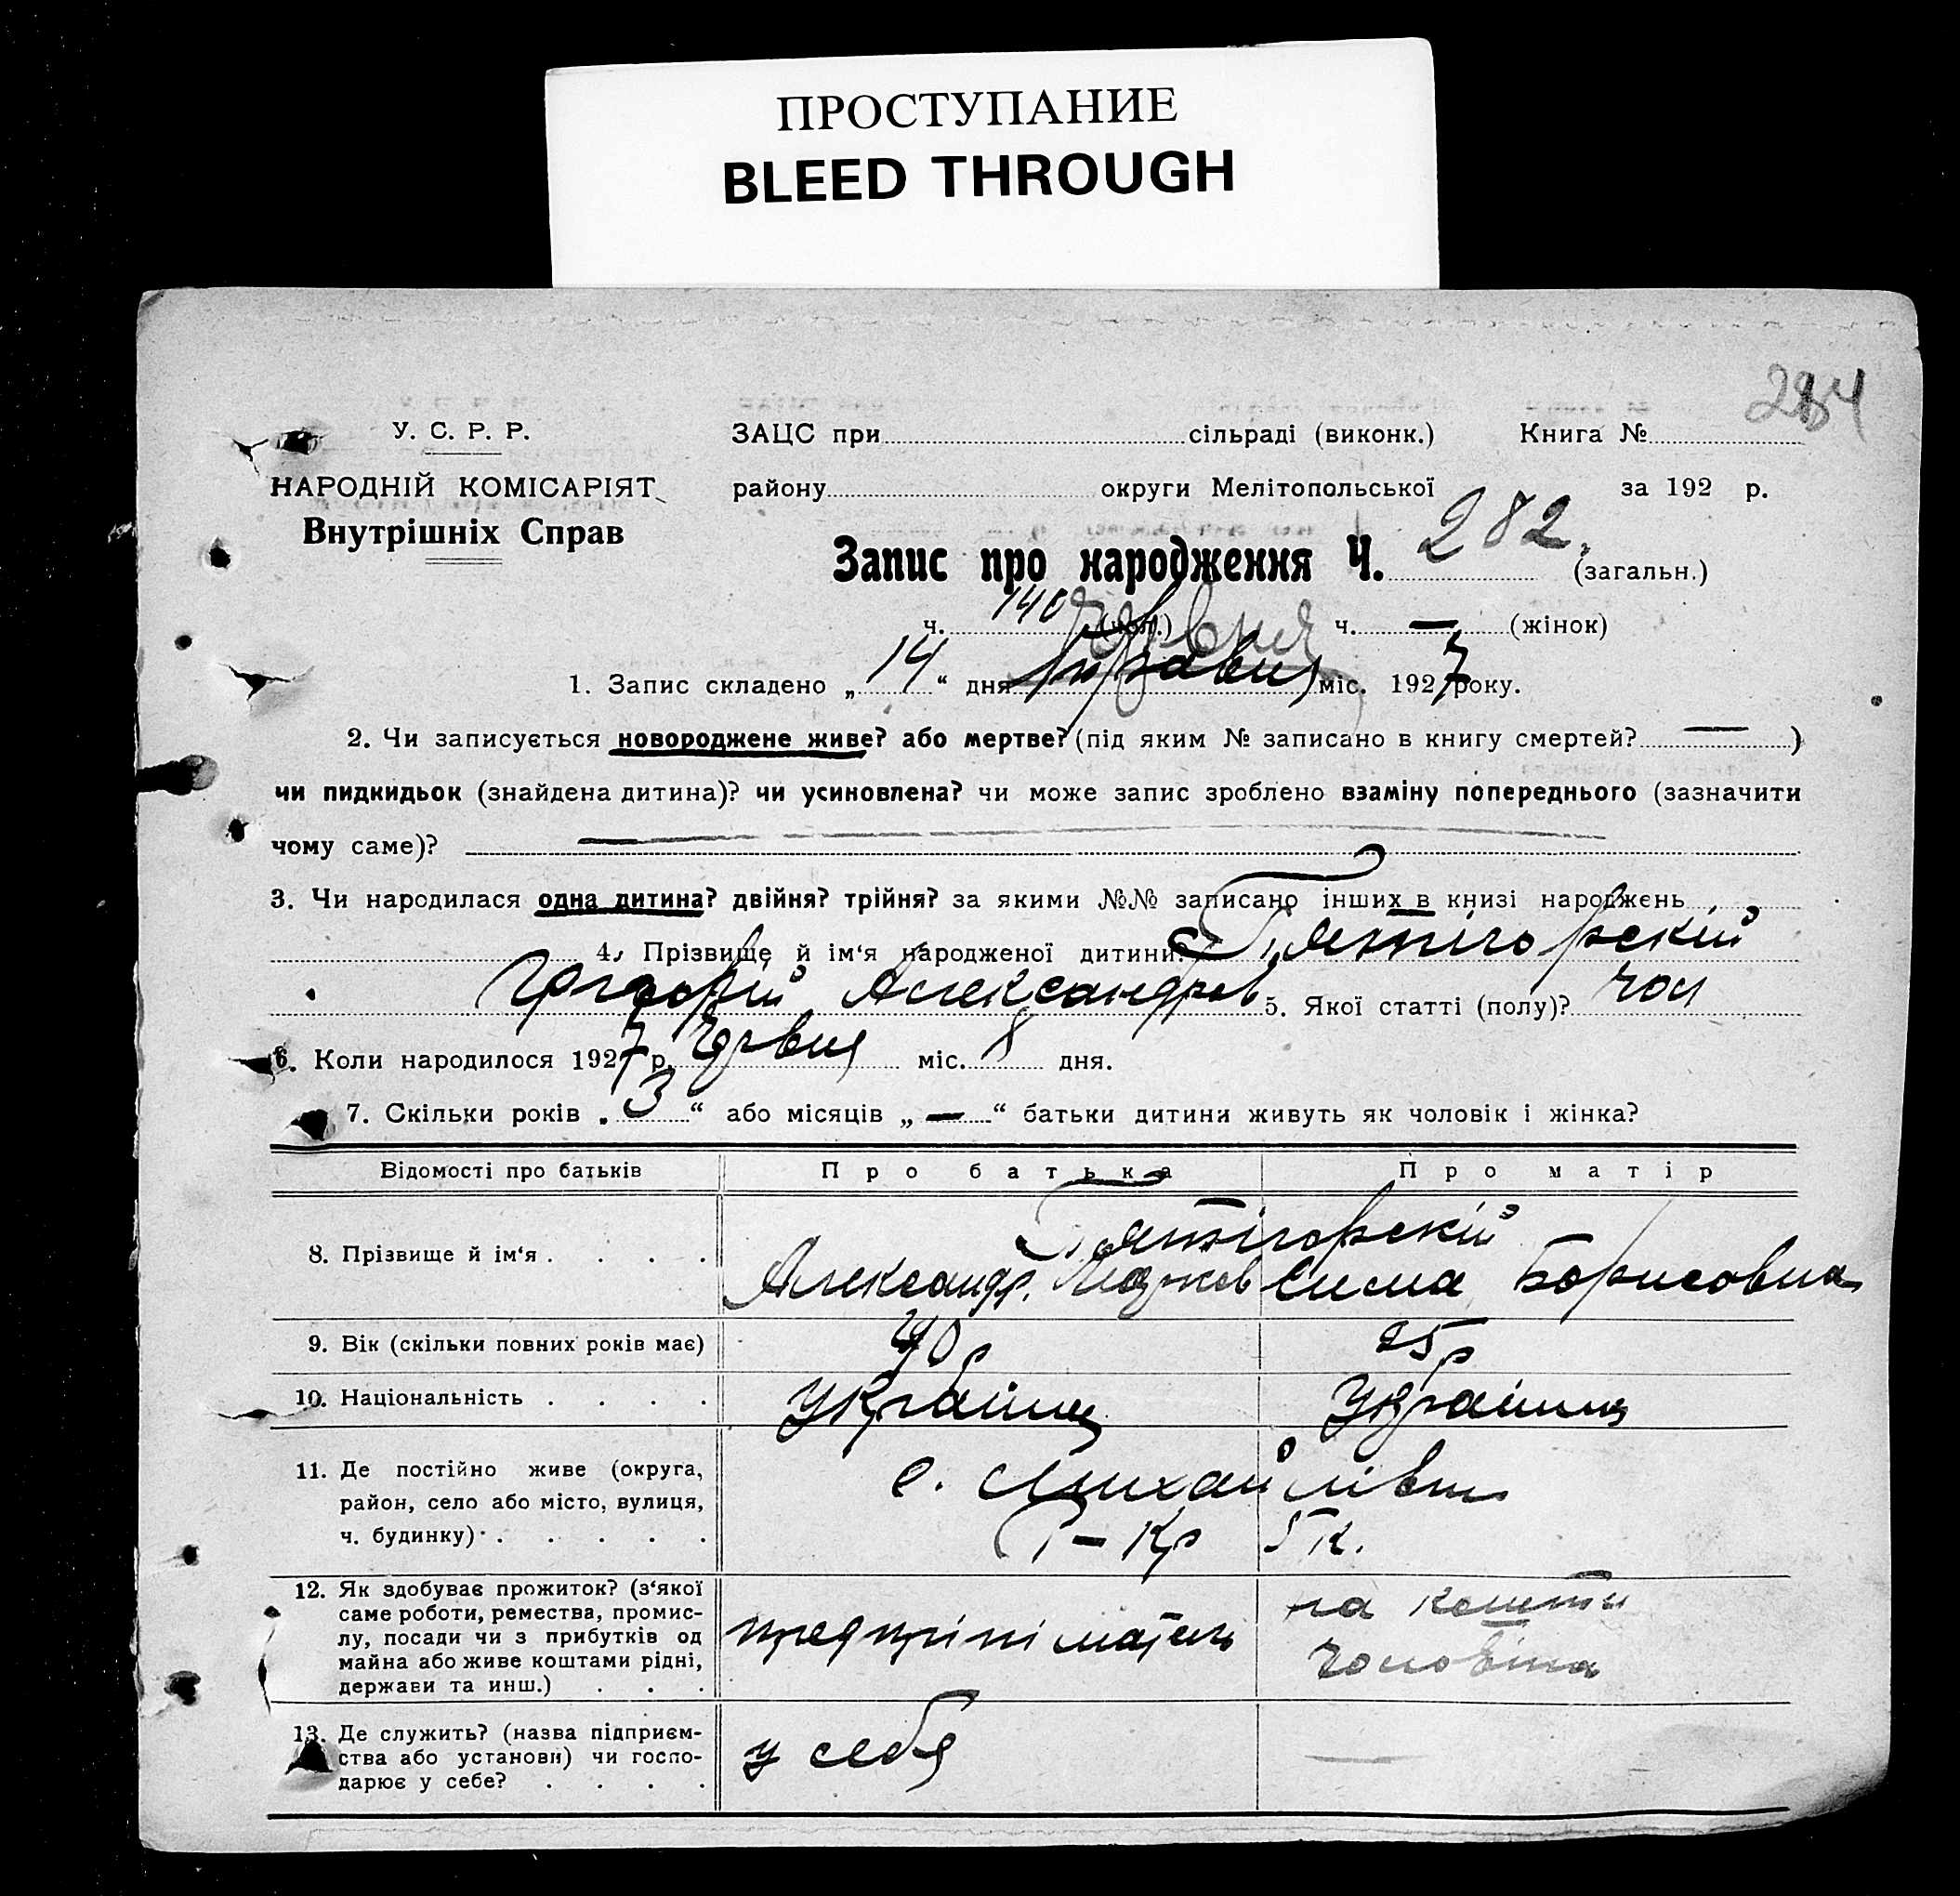 ПРОСТУПАНИЕ
BLEED THROUGH
284
У. С. Р. Р.
НАРОДНІЙ КОМІСАРІЯТ
Внутрішніх Справ
ЗАЦС при сільраді (виконк.) Книга №
району округи Мелітопольської за 192 р.
Запис про народження Ч. 282. (загальн.)
ч. 140 (чол.) ч. — (жінок)
червня
1. Запис складено „ 14 “ дня міс. 1927 року.
2. Чи записується новороджене живе? або мертве? (під яким № записано в книгу смертей? — )
чи пидкидьок (знайдена дитина)? чи усиновлена? чи може запис зроблено взаміну попереднього (зазначити
чому саме)? —
3. Чи народилася одна дитина? двійня? трійня? за якими №№ записано інших в книзі народжень
4. Прізвище й ім‘я народженої дитини: Пятігорскій
Григорій Александров 5. Якої статті (полу)? чол
6. Коли народилося 1927 р. Червня міс. 8 дня.
7. Скільки років „ 3 “ або місяців „ — “ батьки дитини живуть як чоловік і жінка?
Відомості про батьків Про батька Про матір
Пятігорскій
8. Прізвище й ім‘я . . . . Александр. Сима Борисовна
9. Вік (скільки повних років має) 40 р 25 р
10. Національність . . . . Українец Україниц
11. Де постійно живе (округа, с. Михайлівки
район, село або місто, вулиця,
ч. будинку) . . . . . 1 - Кр 5 к.
12. Як здобуває прожиток? (з‘якої
саме роботи, ремества, промис-
лу, посади чи з прибутків од
майна або живе коштами рідні,
держави та инш.) . . .
предпрініматель на кошти
чоловіка
13. Де служить? (назва підприєм-
ства або установи) чи госпо-
дарює у себе? . . . .
у себя —